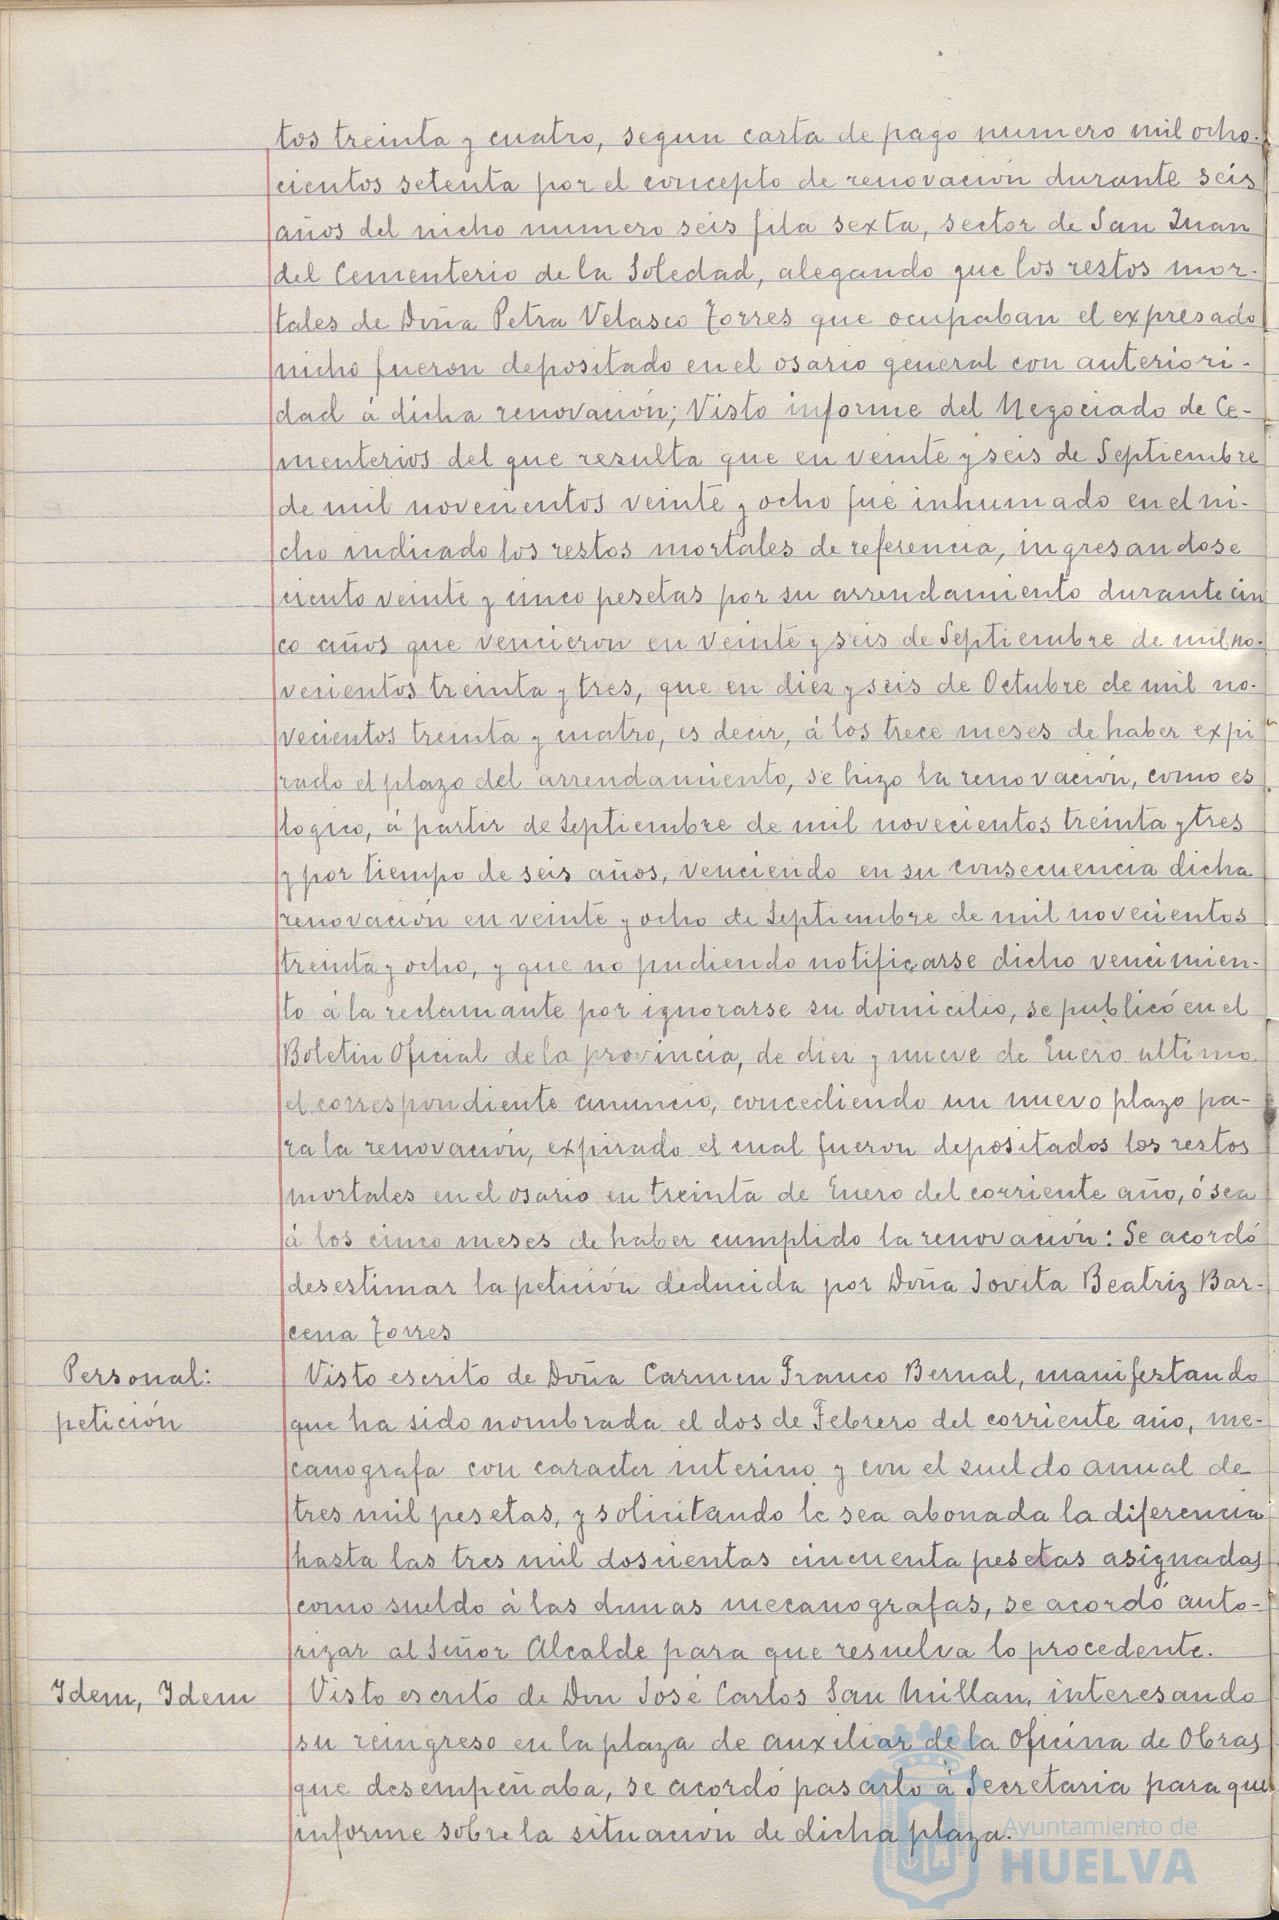 tos treinta y cuatro, segun carta de pago numero mil ocho-
cientos setenta por el concepto de renovación durante seis
años del nicho numero seis fila sexta, sector de San Juan
del Cementerio de la Soledad, alegando que los restos mor-
tales de Doña Petra Velasco Torres que ocupaban el expresado
nicho fueron depositado en el osario general con anteriori-
dad á dicha renovación; Visto informe del Negociado de Ce-
menterios del que resulta que en veinte y seis de Septiembre
de mil novecientos veinte y ocho fué inhumado en el ni-
cho indicado los restos mortales de referencia, ingresandose
ciento veinte y cinco pesetas por su arrendamiento durante cin
co años que vencieron en veinte y seis de Septiembre de mil no-
vecientos treinta y tres, que en diez y seis de Octubre de mil no-
vecientos treinta y cuatro, es decir, á los trece meses de haber expi
rado el plazo del arrendamiento, se hizo la renovación, como es
logico, á partir de Septiembre de mil novecientos treinta y tres
y por tiempo de seis años, venciendo en su consecuencia dicha
renovación en veinte y ocho de Septiembre de mil novecientos
treinta y ocho, y que no pudiendo notificarse dicho vencimien-
to á la reclamante por ignorarse su domicilio, se publicó en el
Boletin Oficial de la provincia, de diez y nueve de Enero ultimo
el correspondiente anuncio, concediendo un nuevo plazo pa-
ra la renovación, expirado el cual fueron depositados los restos
mortales en el osario en treinta de Enero del corriente año, ó sea
á los cinco meses de haber cumplido la renovación: Se acordó
desestimar la petición deducida por Doña Jovita Beatriz Bar-
cena Torres
Personal: Visto escrito de Doña Carmen Franco Bernal, manifestando
petición que ha sido nombrada el dos de Febrero del corriente año, me-
canografa con caracter interino y con el sueldo anual de
tres mil pesetas, y solicitando le sea abonada la diferencia
hasta las tres mil doscientas cincuenta pesetas asignadas
como sueldo á las demas mecanografas, se acordó auto-
rizar al Señor Alcalde para que resuelva lo procedente.
Idem, Idem Visto escrito de Don José Carlos San Millan, interesando
su reingreso en la plaza de auxiliar de la Oficina de Obras
que desempeñaba, se acordó pasarlo á Secretaria para que
informe sobre la situación de dicha plaza.
Ayuntamiento de
HUELVA